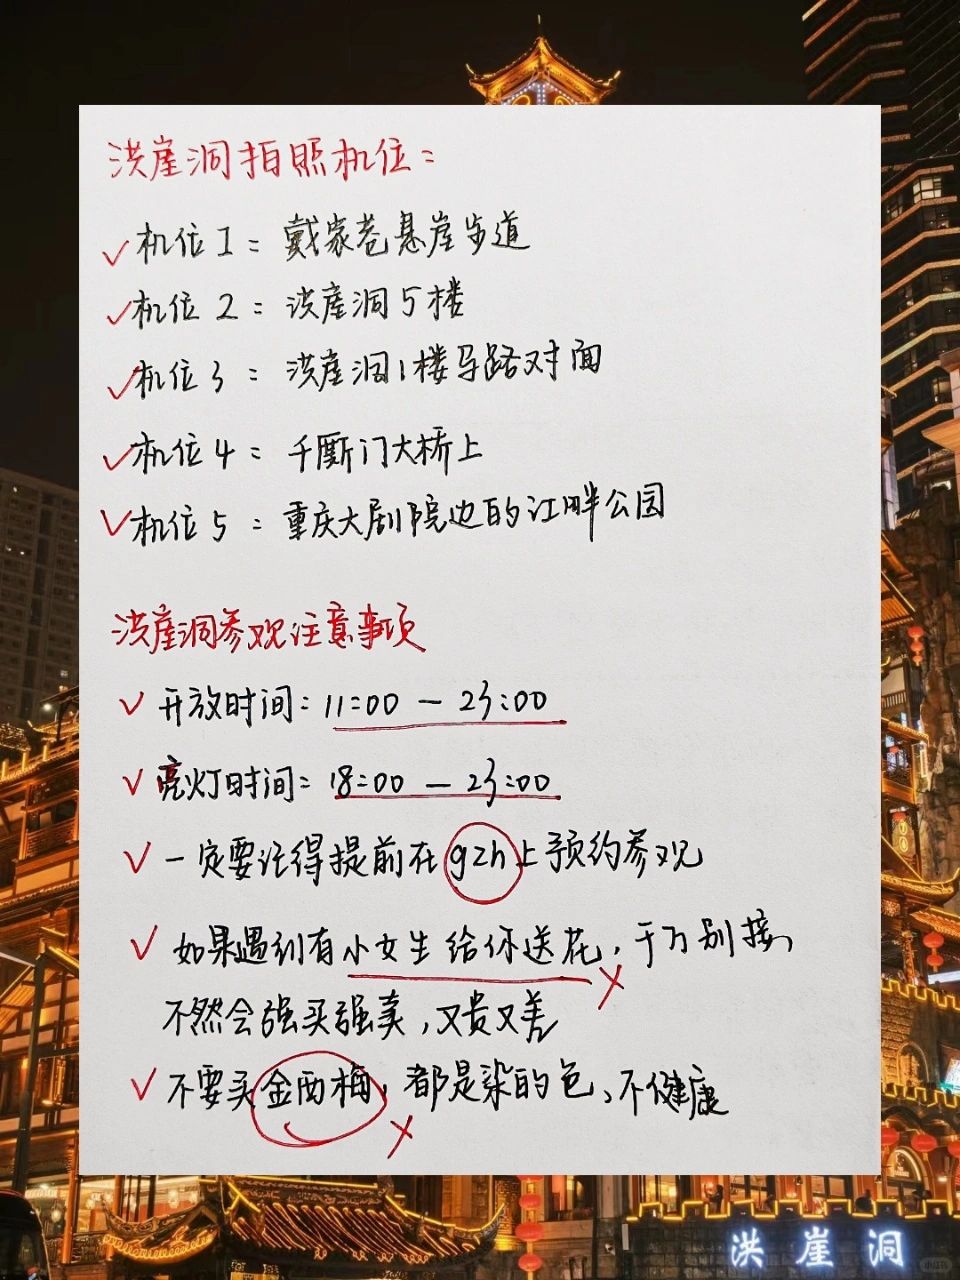 洪崖洞拍照机位:
机位1:戴家巷悬崖步道
机位2:洪崖洞5楼
机位3:洪崖洞1楼马路对面
机位4:千厮门大桥上
机位5:重庆大剧院边的江畔公园
洪崖洞参观注意事项
开放时间:11:00 — 23:00
亮灯时间:18:00 — 23:00
一定要记得提前在gzh上预约参观
如果遇到有小女生给你送花,千万别接,
不然会强买强卖,又贵又差
不要买金西梅,都是染的色,不健康
洪崖洞
小红书